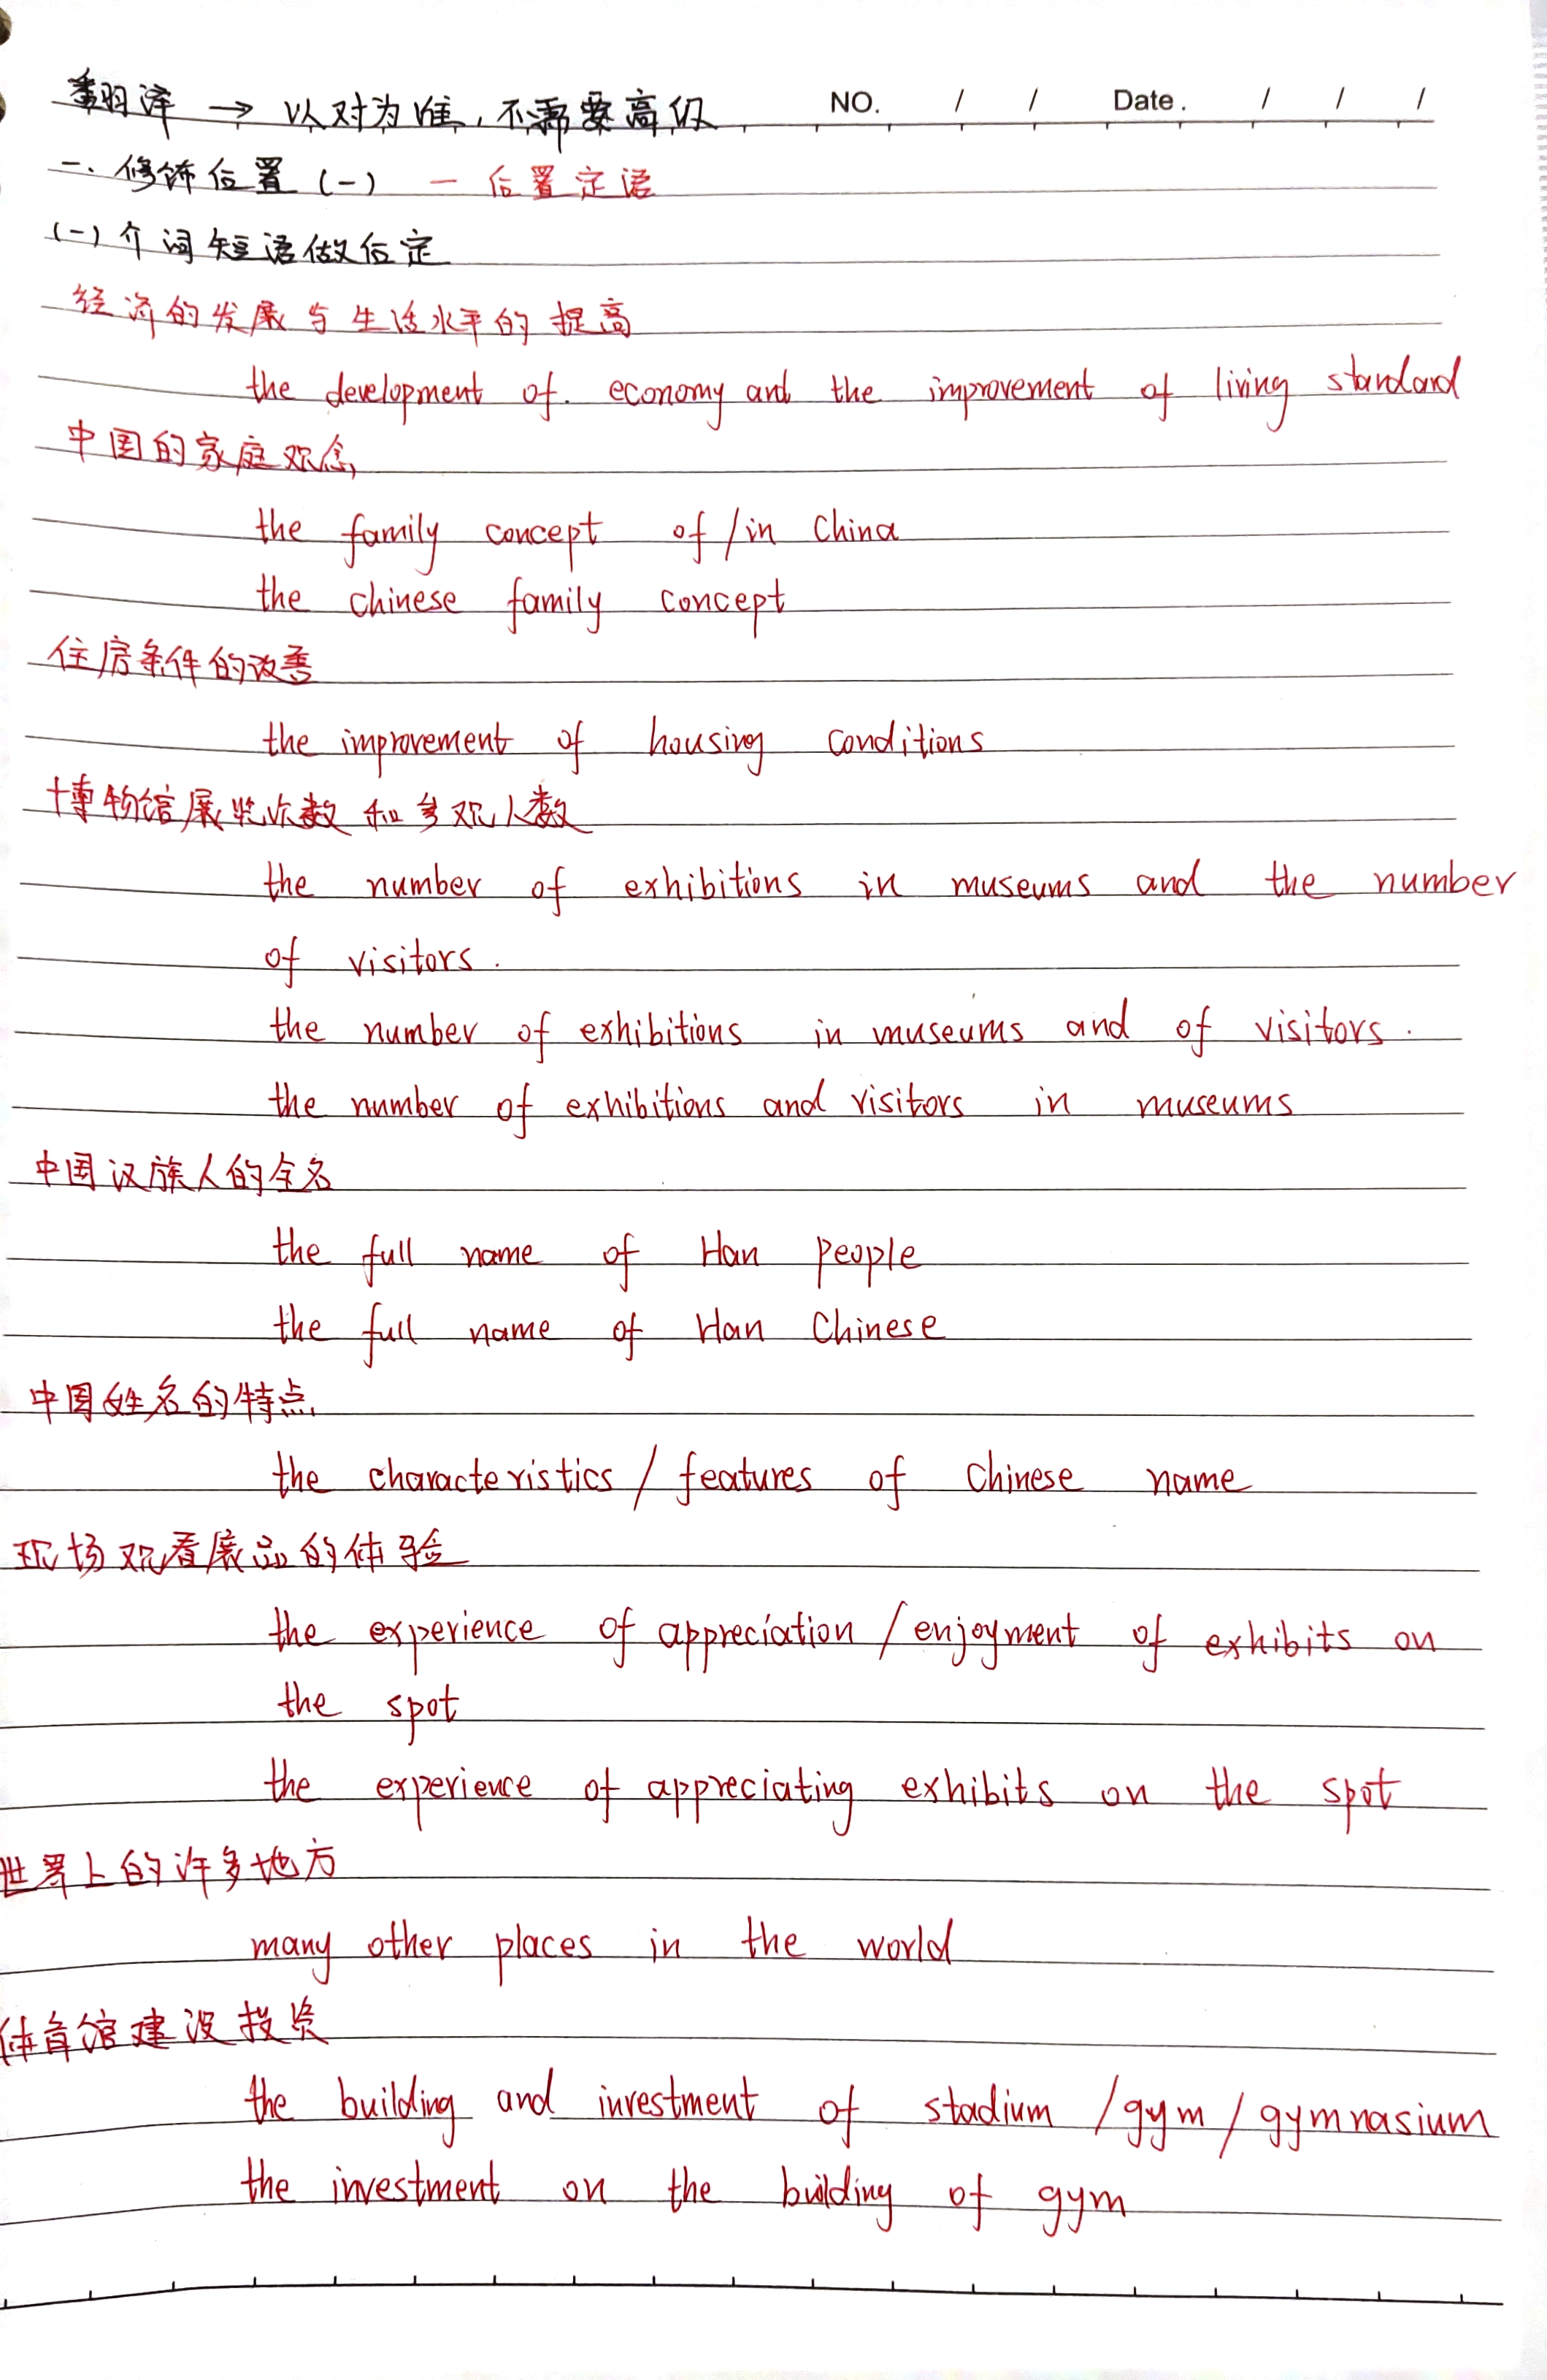 翻译 → 以对为准，不需要高级 NO. / / Date. / / /
二、修饰后置（一） — 后置定语
（一）介词短语做后定
经济的发展与生活水平的提高
the development of economy and the improvement of living standard
中国的家庭观念
the family concept of / in China
the chinese family concept
住房条件的改善
the improvement of housing conditions
博物馆展览次数和参观人数
the number of exhibitions in museums and the number
of visitors.
the number of exhibitions in museums and of visitors.
the number of exhibitions and visitors in museums
中国汉族人的全名
the full name of Han people
the full name of Han Chinese
中国姓名的特点
the characteristics / features of Chinese name
现场观看展品的体验
the experience of appreciation / enjoyment of exhibits on
the spot
the experience of appreciating exhibits on the spot
世界上的许多地方
many other places in the world
体育馆建设投资
the building and investment of stadium / gym / gymnasium
the investment on the building of gym